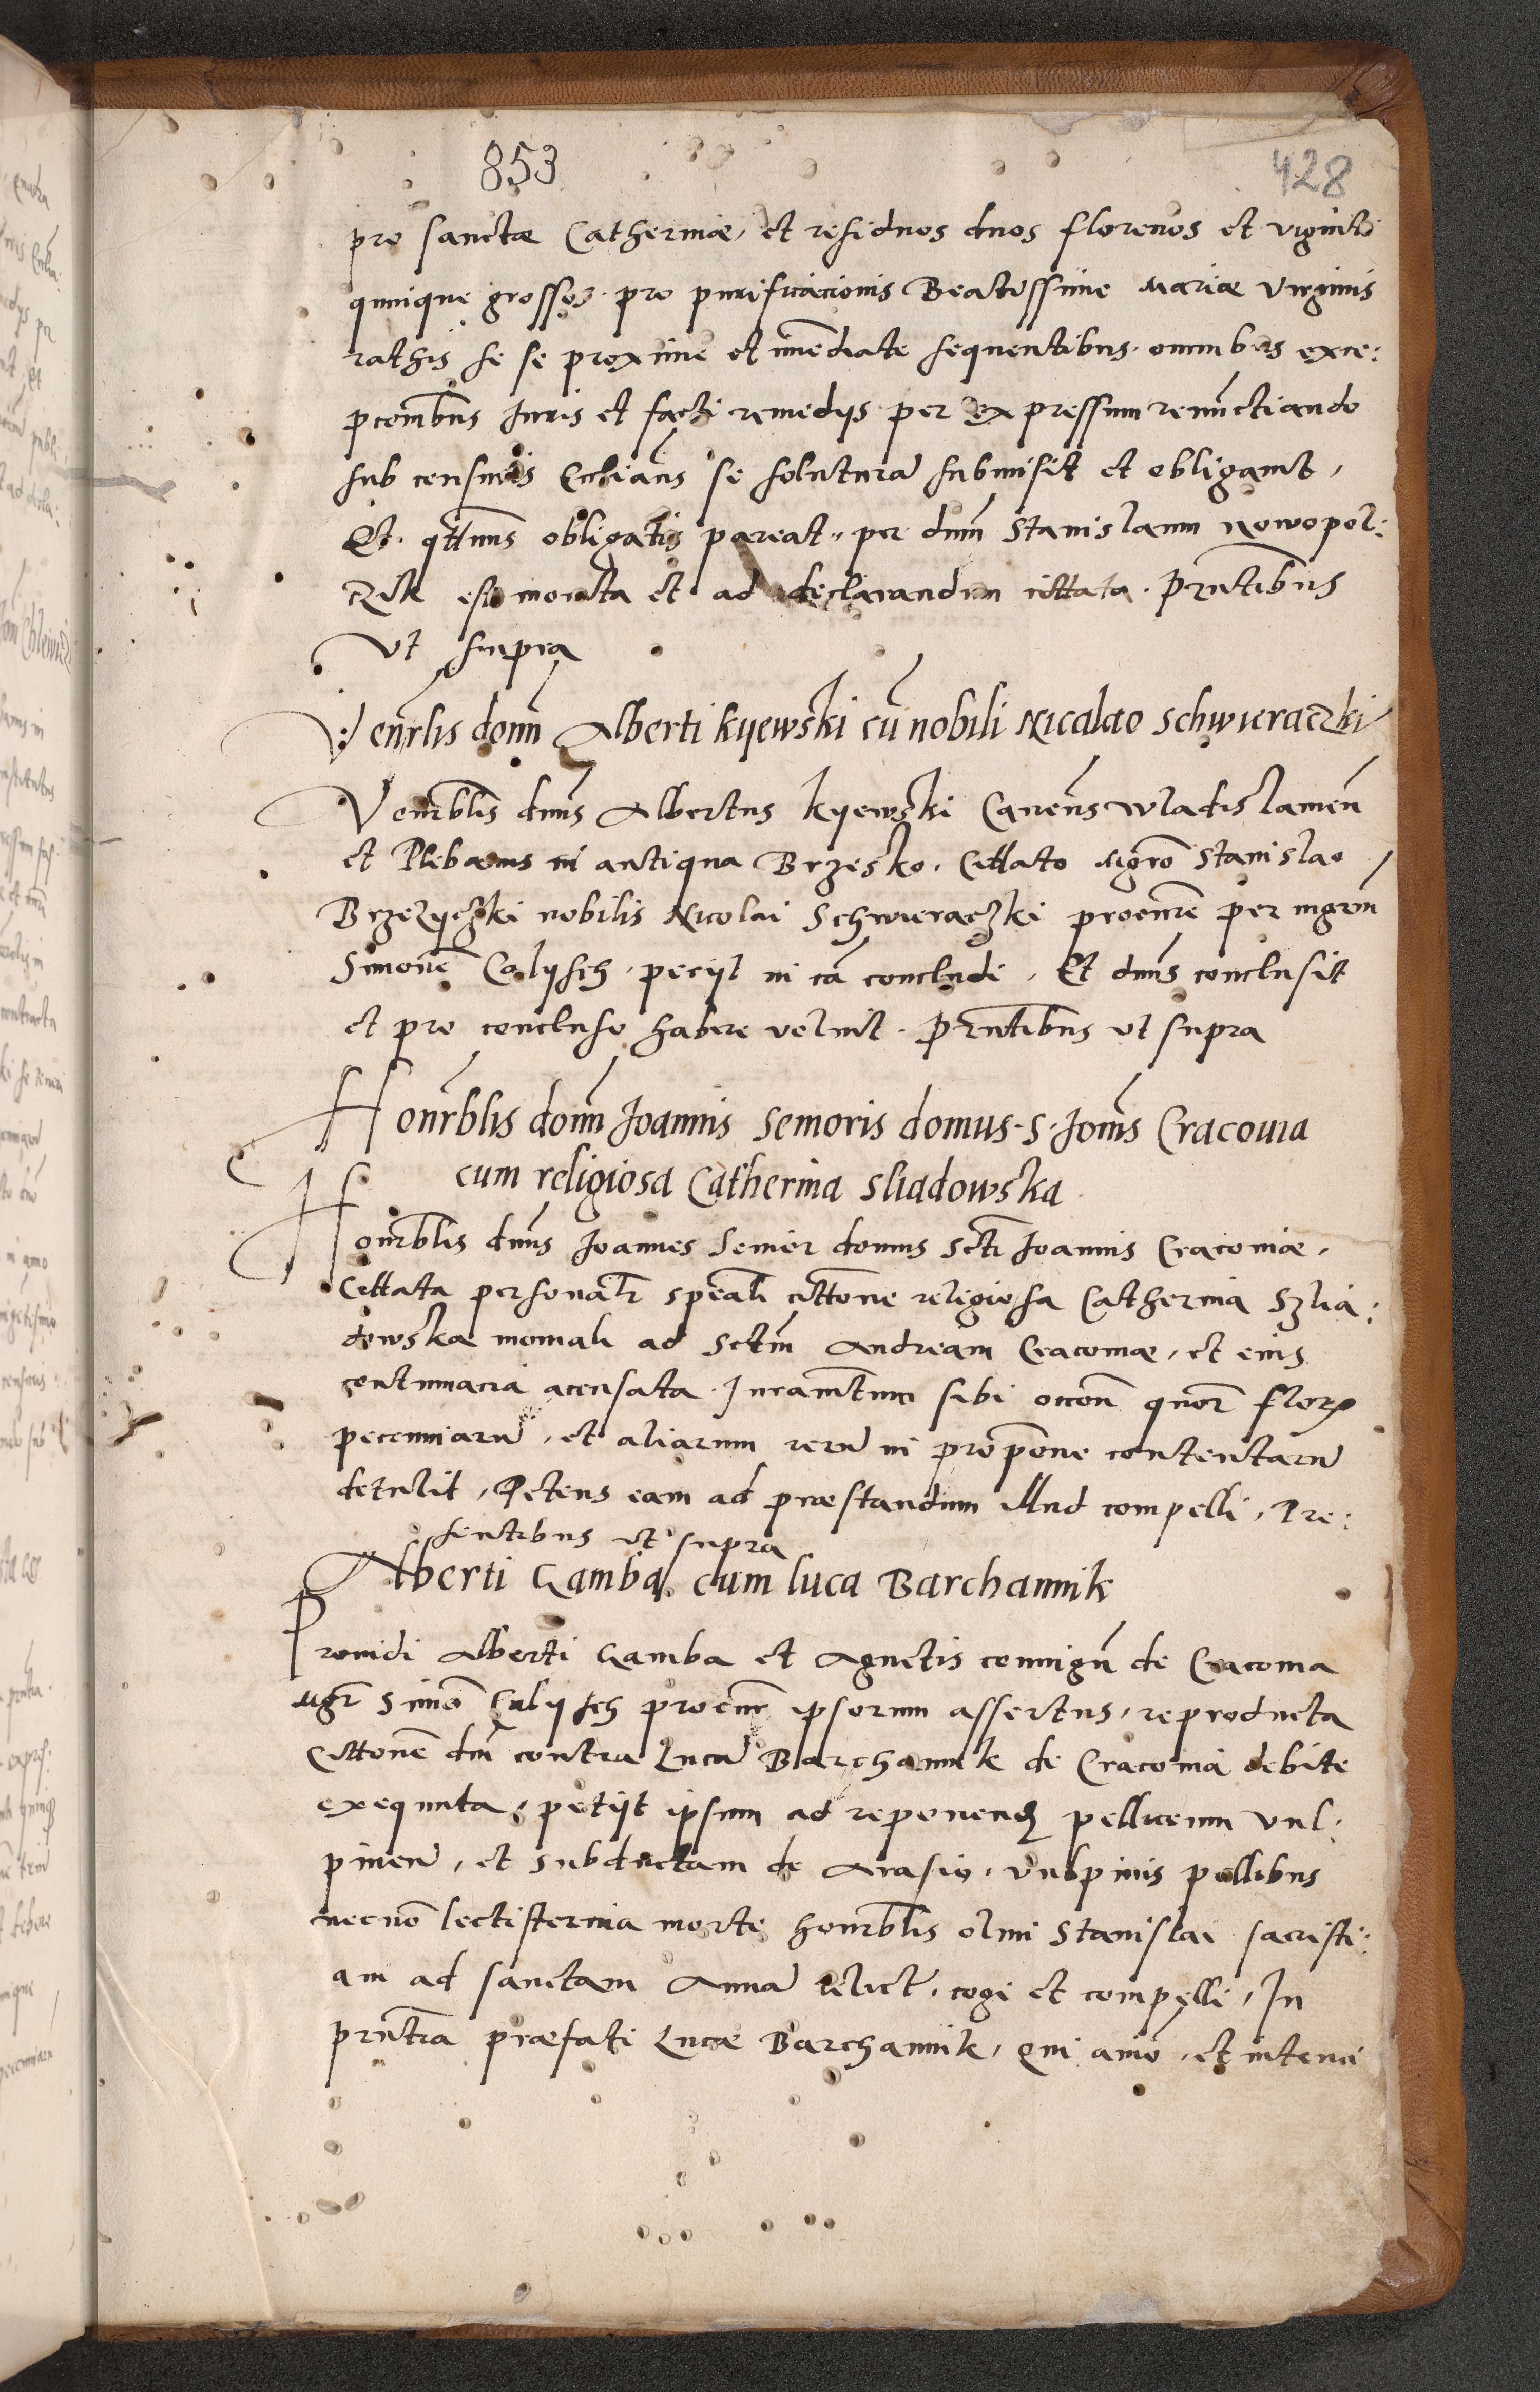 853
428
pro sanctæ Catherinæ, et residuos duos florenos et viginti
quinique grossos pro purificacionis Beatissime Mariæ Virginis
rathis se se proxime et imediate sequentibus. omnibus exce:
pconibus Juris et facti remedijs per expressum renuntiando
sub censuris Ecclianis se soluturã submisit et obligavit,
Et qttnus obligatis pareat, per dnum Stanislaum Nowopol:
czik est monita et ad declarandum cittata. Prntibus
vt supra
Venrlis domi Alberti Kyewski cũ nobili Nicalao Schwieraczki
Venrblis dnus Albertus Kyewski Canens Wladislamen
et Plebanus in antiqua Brzesko. Cittato Mgro Stanislao
Brzezyczki nobilis Nicolai Schwieraczki procure per mgrm
Simone Calysch. peciit in cã concludi, Et dnus conclusit
et pro concluso habere voluit. Prntibus vt supra
Honrblis domi Joannis Senioris domus S. Joanis Cracovia
cum religiosa Catherina Sliadowska
Honrblis dnus Joannes Senior domus Scti Joannis Cracoviæ,
Cittata personalr speali cittone religiosa Catherina Szlia:
dowska moniali ad Sctm Andream Cracoviæ, et eius
contumacia acensata. Juramtum sibi occone quor florz
pecuniarũ, et aliarum rerũ in propone contentarũ
detulit, Petens eam ad præstandum illud compelli, Pre:
sentibus vt supra
Alberti Gamba cum luca Barchannik
Providi Alberti Gamba et Agnetis coniugũ de Cracovia
Mgr Simo Calysch procur ipsorum assertus, reproducta
Cittone dni contra Lucã Barchannik de Cracovia debite
exequuta, petijt ipsum ad reponend pelliceum vul:
pineũ, et subductam de Arasio, vulpinis pellibus
necno lectisternia morte honrblis olim Stanislai sacristi:
am ad sanctam Annã relict, cogi et compelli, In
prntia præfati Lucæ Barchannik, qui aio, et intena